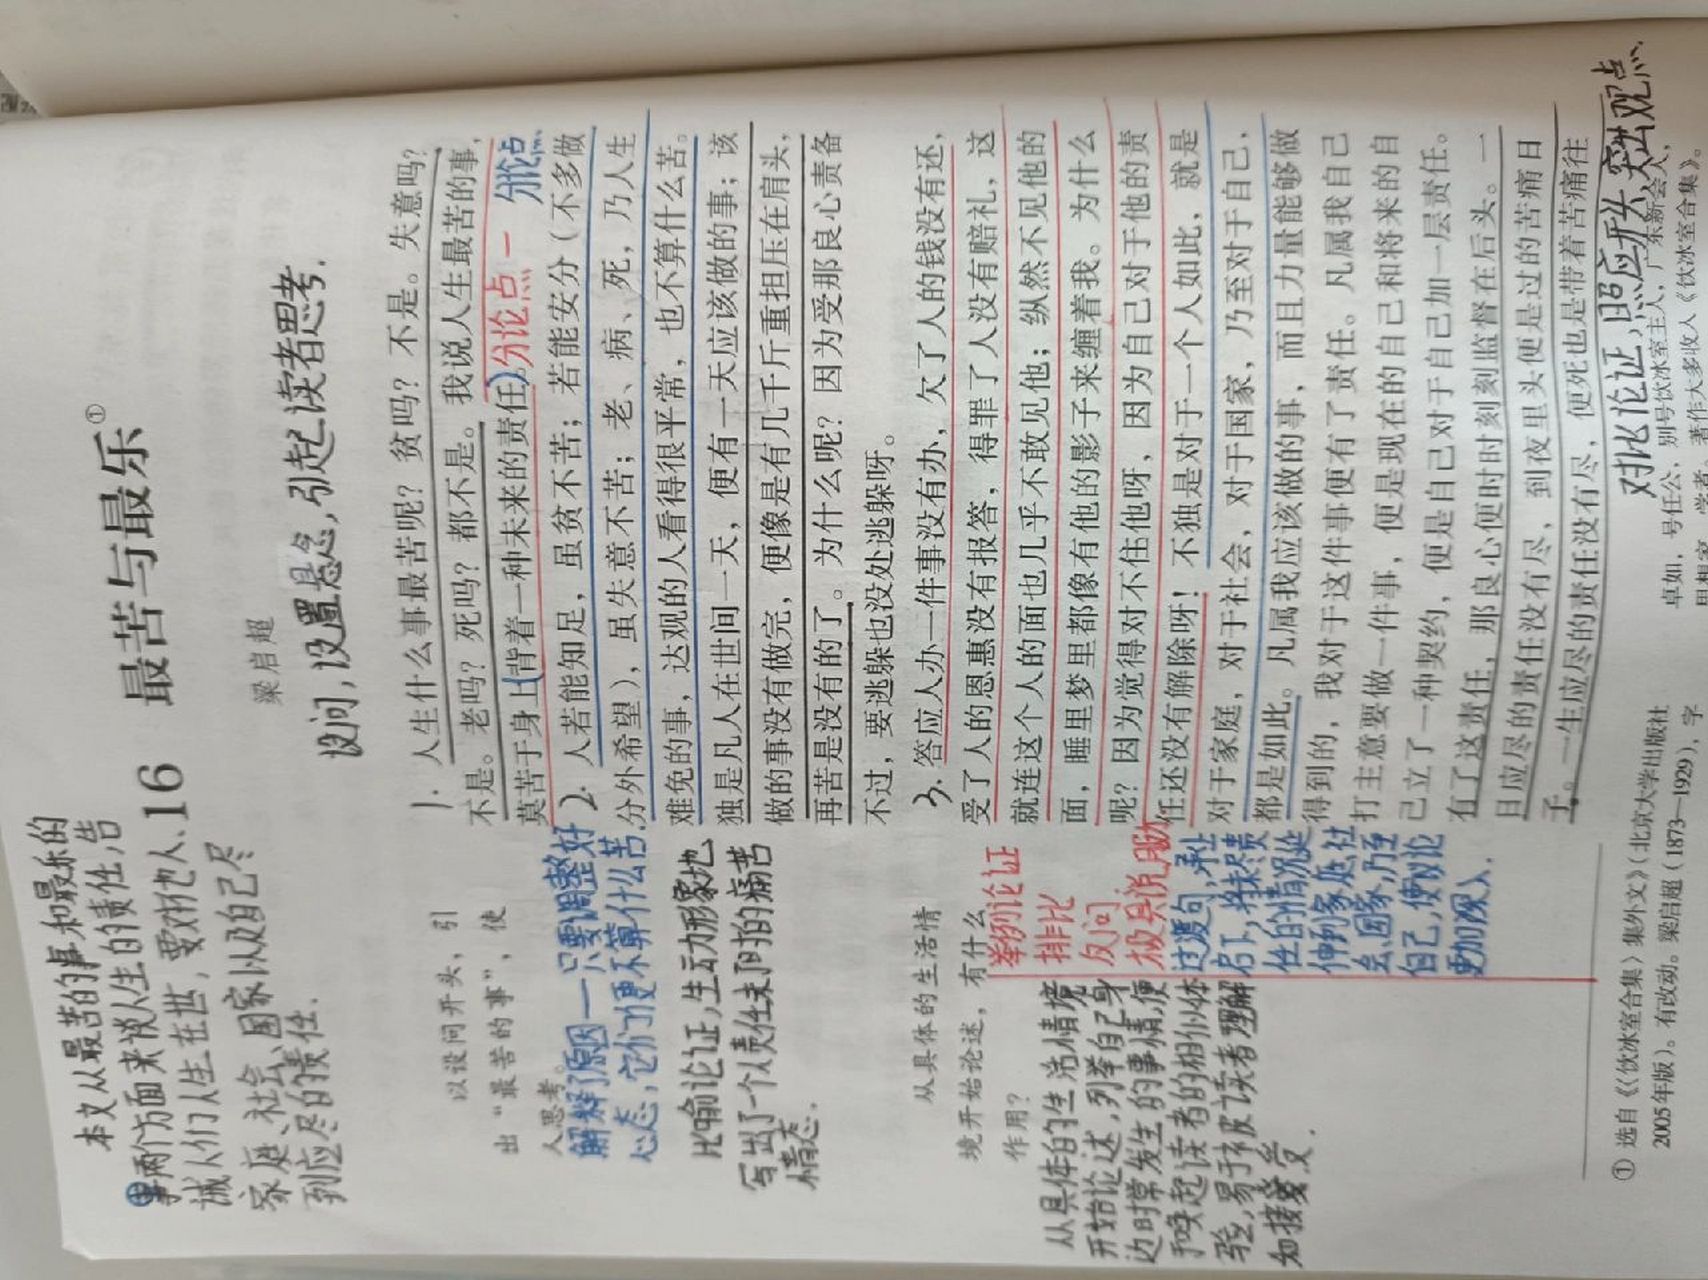 本文从最苦的事和最乐的
事两个方面来谈人生的责任,告
诫人们人生在世,要对他人、
家庭、社会、国家以及自己尽
到应尽的责任.
16 最苦与最乐①
梁启超
设问,设置悬念,引起读者思考.
以设问开头,引
出“最苦的事”,使
人思考。
解释了原因——只要调整好
心态,它们便不算什么苦.
比喻论证,生动形象地
写出了一个人责任未尽时的痛苦
情态.
从具体的生活情
境开始论述,有什么
作用?
从具体的生活情境
开始论述,列举自己身
边时常发生的事情,便
于唤起读者的相似体
验,易于被读者理解
和接受.
举例论证
排比
反问
极具说服力
过渡句,承上
启下,将未尽责
任的情况延
伸到家庭、社
会、国家,乃至
自己,使议论
更加深入.
1. 人生什么事最苦呢?贫吗?不是。失意吗?
不是。老吗?死吗?都不是。我说人生最苦的事,
莫苦于身上背着一种未来的责任。分论点一 分论点
2. 人若能知足,虽贫不苦;若能安分(不多做
分外希望),虽失意不苦;老、病、死,乃人生
难免的事,达观的人看得很平常,也不算什么苦。
独是凡人在世间一天,便有一天应该做的事;该
做的事没有做完,便像是有几千斤重担压在肩头,
再苦是没有的了。为什么呢?因为受那良心责备
不过,要逃躲也没处逃躲呀。
3. 答应人办一件事没有办,欠了人的钱没有还,
受了人的恩惠没有报答,得罪了人没有赔礼,这
就连这个人的面也几乎不敢见他;纵然不见他的
面,睡里梦里都像有他的影子来缠着我。为什么
呢?因为觉得对不住他呀,因为自己对于他的责
任还没有解除呀!不独是对于一个人如此,就是
对于家庭,对于社会,对于国家,乃至对于自己,
都是如此。凡属我应该做的事,而且力量能够做
得到的,我对于这件事便有了责任。凡属我自己
打主意要做一件事,便是现在的自己和将来的自
己立了一种契约,便是自己对于自己加一层责任。
有了这责任,那良心便时时刻刻监督在后头。一
日应尽的责任没有尽,到夜里头便是过的苦痛日
子。一生应尽的责任没有尽,便死也是带着苦痛往
对比论证,照应开头,突出观点.
① 选自《〈饮冰室合集〉集外文》(北京大学出版社
2005年版)。有改动。梁启超(1873—1929),字
卓如,号任公,别号饮冰室主人,广东新会人,
思想家、学者。著作大多收入《饮冰室合集》。